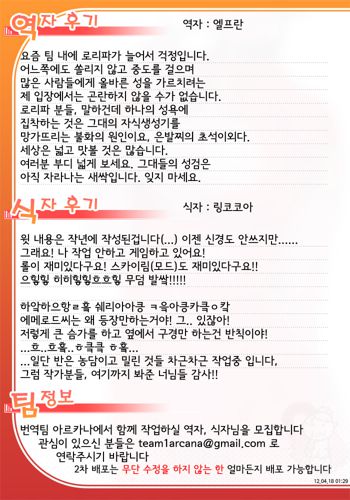 역자 후기
역자 : 엘프란
요즘 팀 내에 로리파가 늘어서 걱정입니다.
어느쪽에도 쏠리지 않고 중도를 걸으며
많은 사람들에게 올바른 성을 가르치려는
제 입장에서는 곤란하지 않을 수가 없습니다.
로리파 분들, 말하건데 하나의 성욕에
집착하는 것은 그대의 자식생성기를
망가뜨리는 불화의 원인이요, 은발찌의 초석이외다.
세상은 넓고 맛볼 것은 많습니다.
여러분 부디 넓게 보세요. 그대들의 성검은
아직 자라나는 새싹입니다. 잊지 마세요.
식자 후기
식자 : 링코코아
윗 내용은 작년에 작성된겁니다(...) 이젠 신경도 안쓰지만......
그래요! 나 작업 안하고 게임하고 있어요!
롤이 재미있다구요! 스카이림(모드)도 재미있다구요!!
으힣힣 히히힣힣흐흐힣 무덤 발싹!!!!!
하앜하으항ㄹ훌 쉐리아아쿵
에메로드씨는 왜 등장만하는거야! 그.. 있잖아!
저렇게 큰 슴가를 하고 옆에서 구경만 하는건 반칙이야!
...일단 반은 농담이고 밀린 것들 차근차근 작업중 입니다,
그럼 작가분들, 여기까지 봐준 너님들 감사!!
팀정보
번역팀 아르카나에서 함께 작업하실 역자, 식자님을 모집합니다
관심이 있으신 분들은 team1arcana@gmail.com 로
연락주시기 바랍니다
2차 배포는 무단 수정을 하지 않는 한 얼마든지 배포 가능합니다
12.04.18 01:29